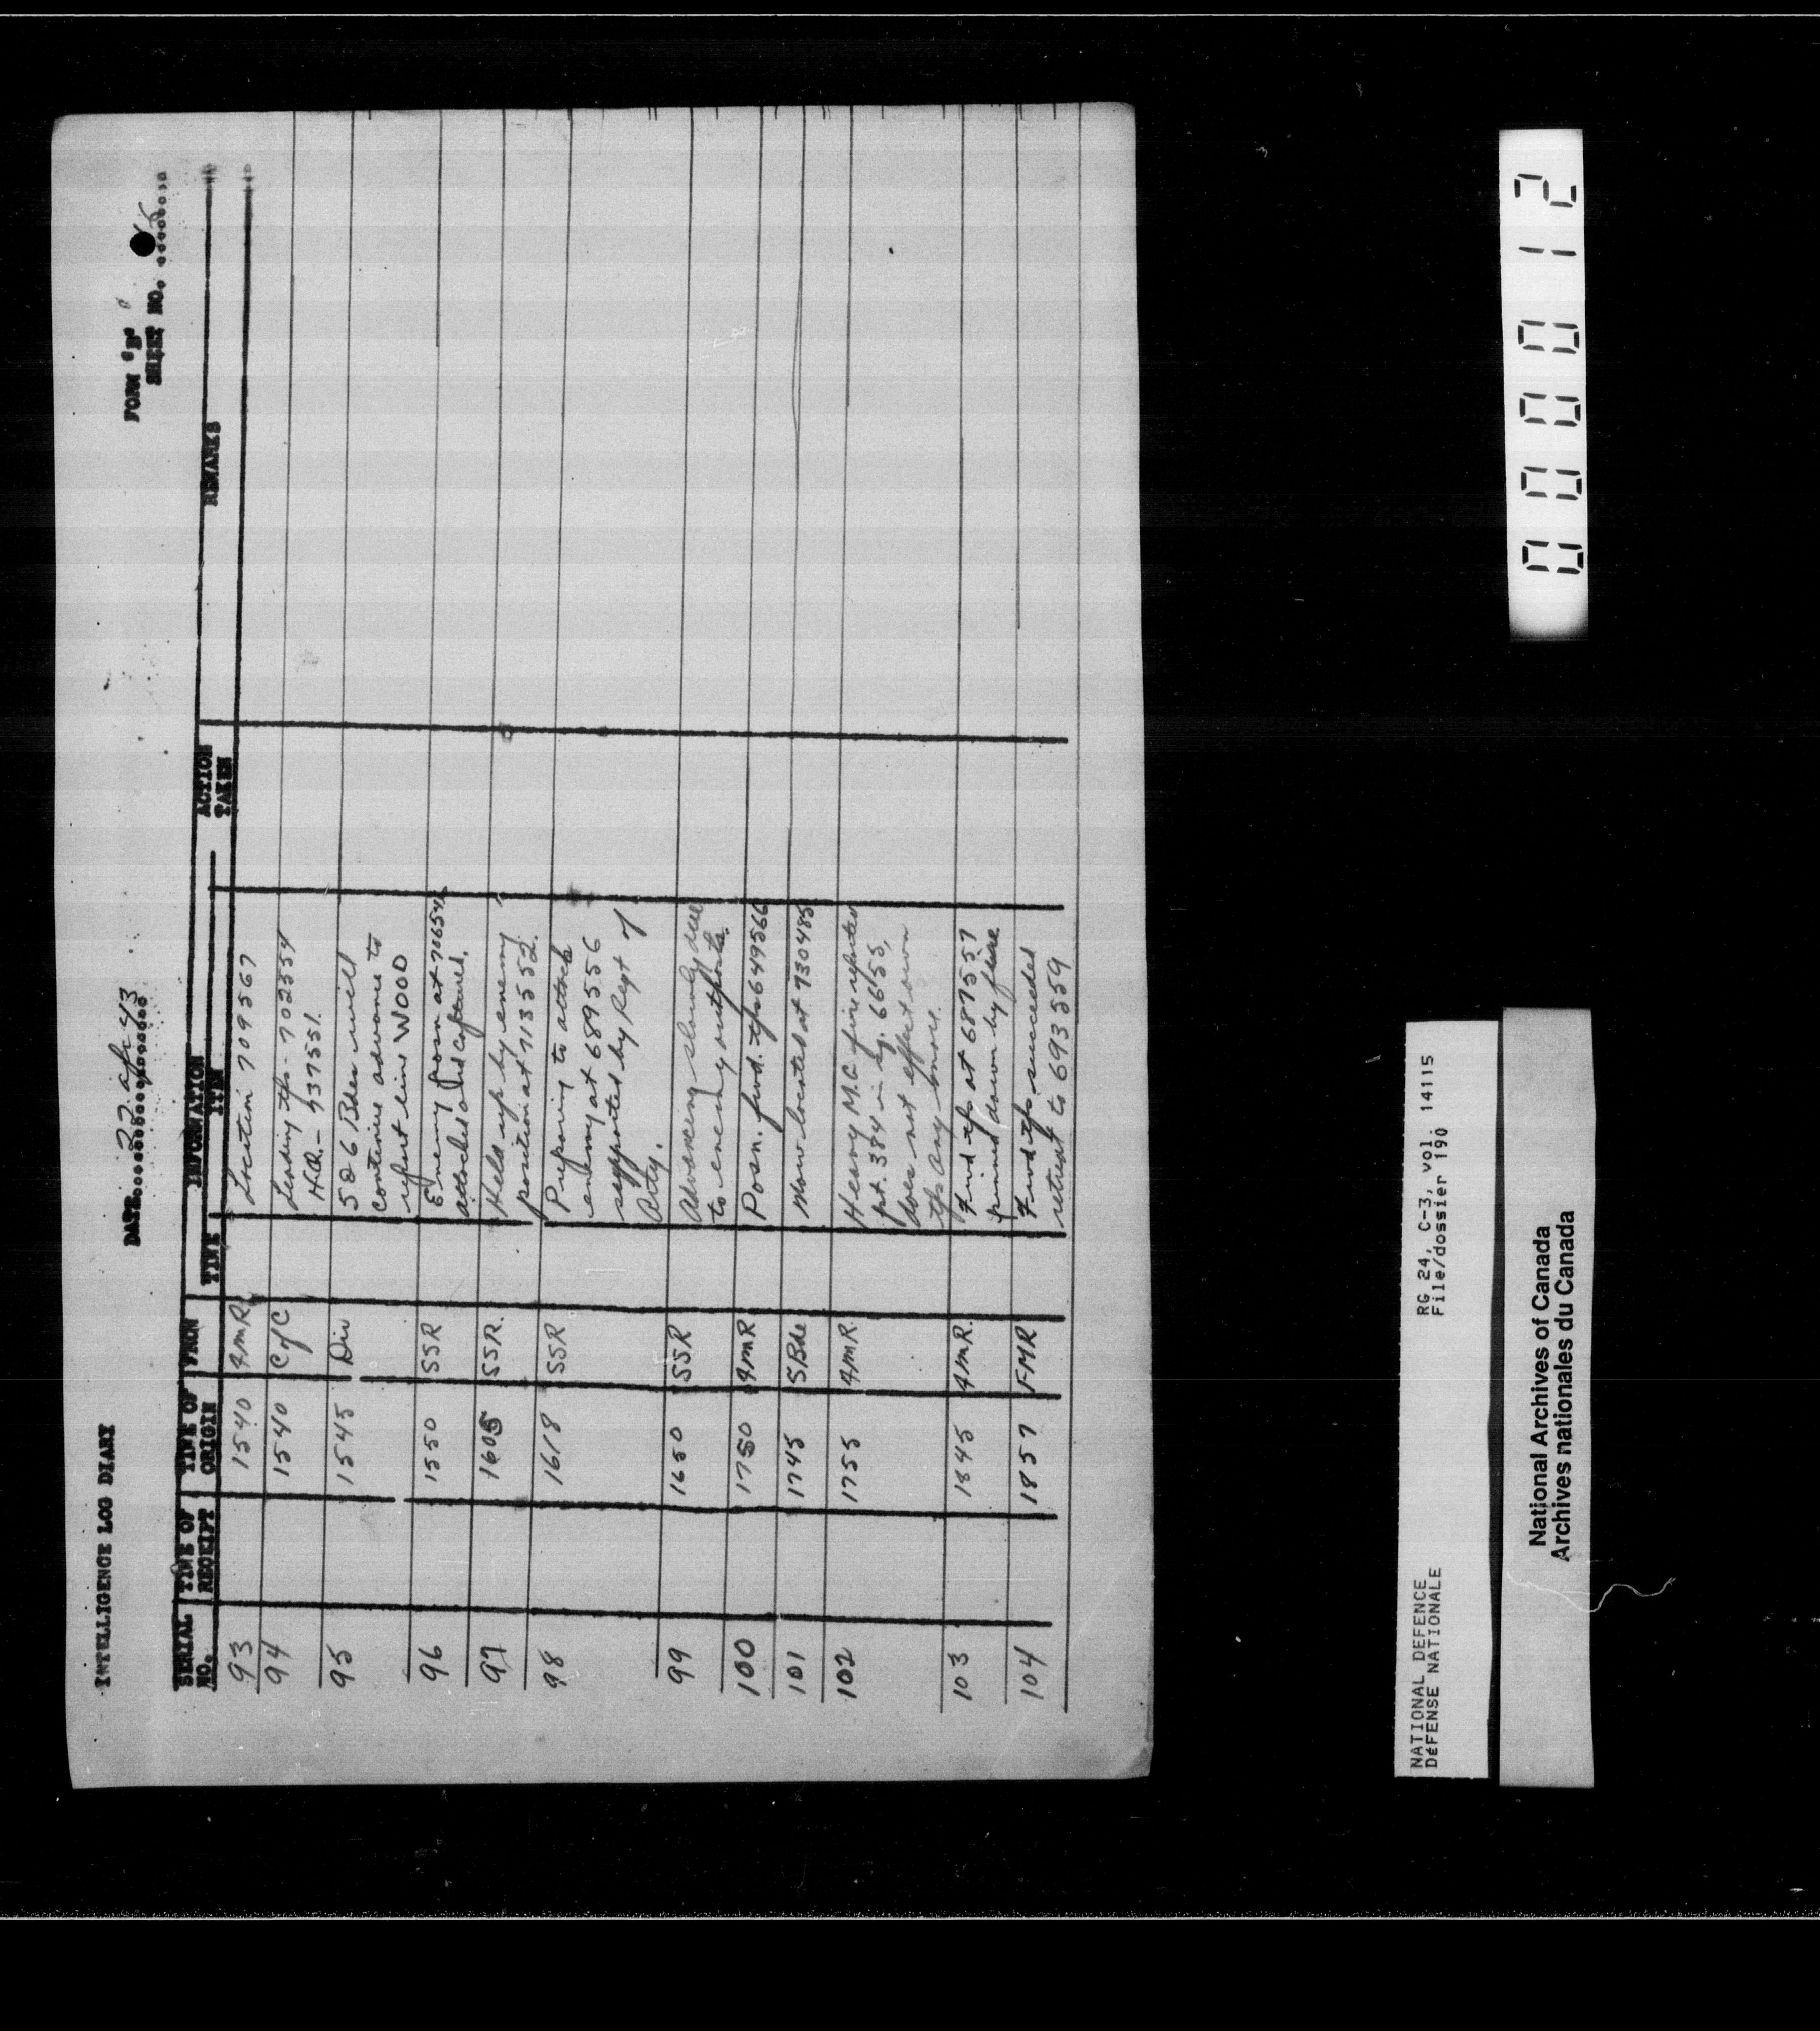 INTELLIGENCE LOG DIARY
DATE 22 Apr 43
FORM "B"
SHEET NO.
SERIAL NO. TIME OF RECEIPT TIME OF ORIGIN FROM INFORMATION ACTION TAKEN REMARKS
TIME ITEM
93 1540 4MR Location 709567
94 1540 C of C Leading tps - 702554
H.Q. - 737551.
95 1545 Div 5 & 6 Bdes will
continue advance to
report line WOOD
96 1550 SSR Enemy posn at 70654
attacked and captured.
97 1605 SSR. Held up by enemy
position at 713552.
98 1618 SSR Preparing to attack
enemy at 689556
supported by Regt of
Arty.
99 1650 SSR Advancing slowly due
to enemy outposts.
100 1750 4MR Posn. fwd. tps 649566
101 1745 5Bde Now located at 730485
102 1755 4MR. Heavy M.G fire reported
pt. 384 in sq. 6655,
does not effect own
tps any more.
103 1845 4MR. Fwd tps at 687557
pinned down by fire
104 1857 FMR Fwd tps succeeded
retreat to 693559
0000012
NATIONAL DEFENCE RG 24, C-3, vol. 14115
DÉFENSE NATIONALE File/dossier 190
National Archives of Canada
Archives nationales du Canada